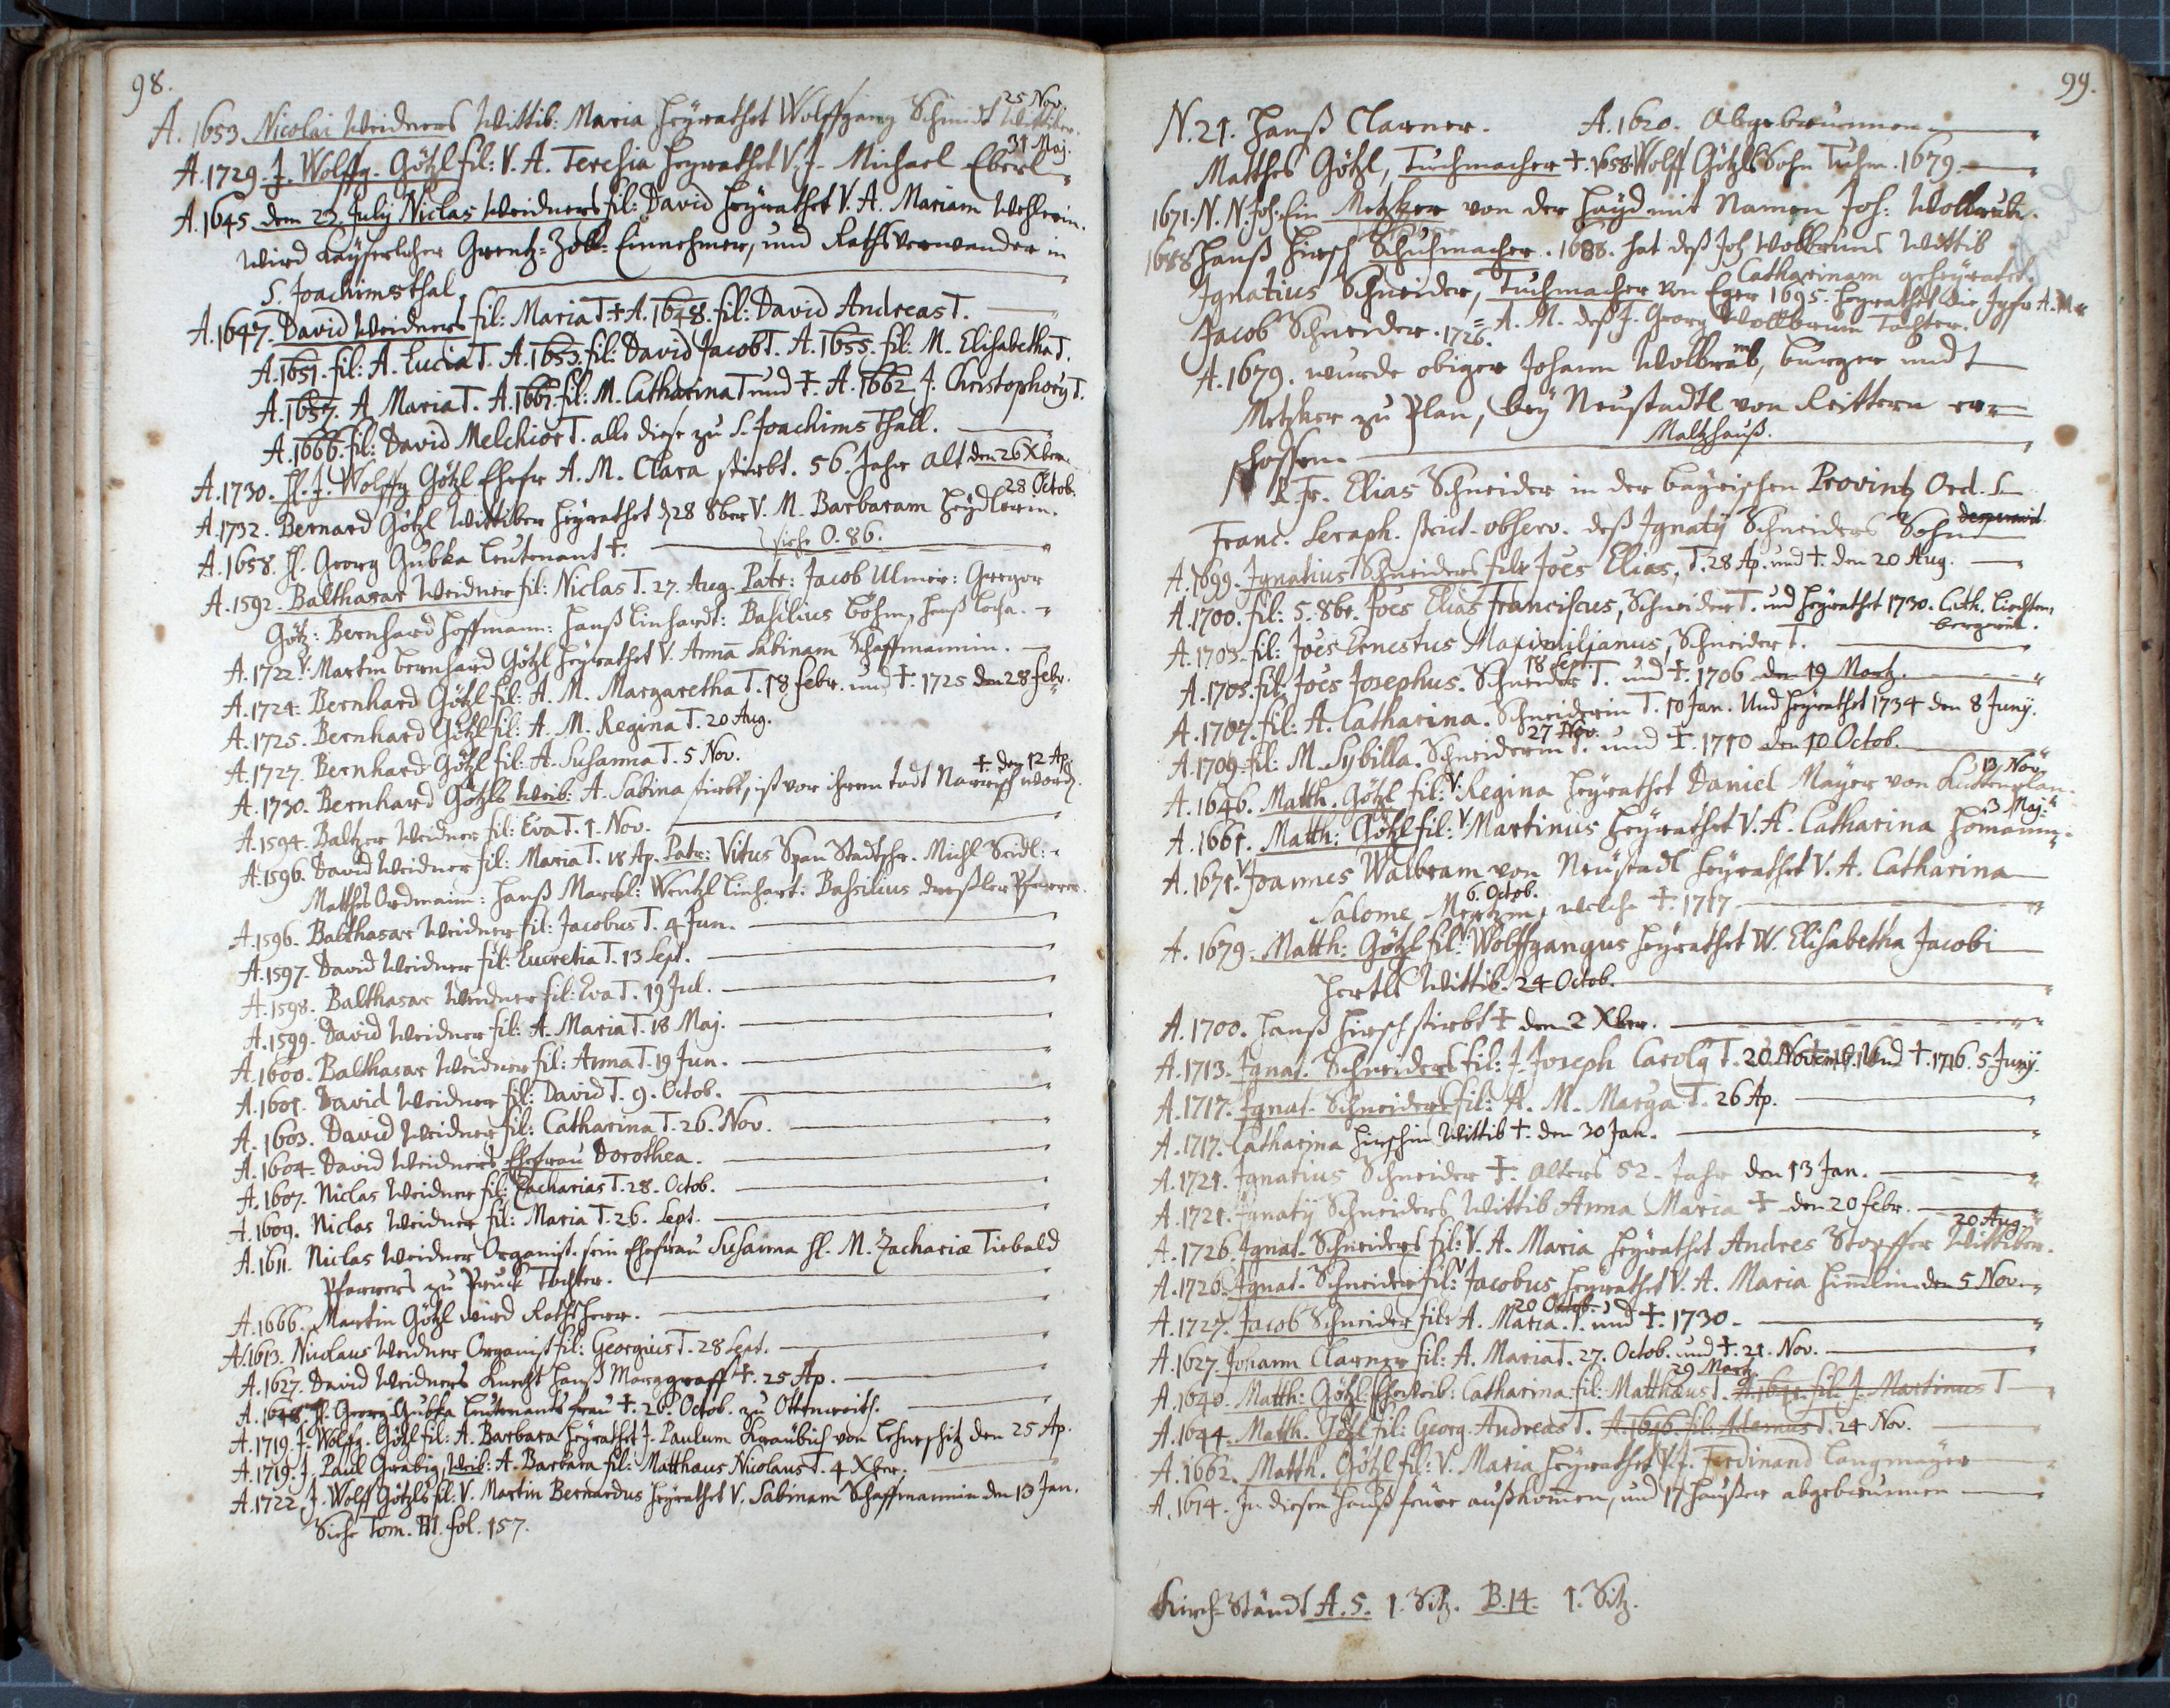 98.
25 Nov.
A. 1653. Nicolai Weidners Wittib: Maria heyrathet Wolffgang Schmidt Wittiber.
31 Maj.
A. 1729. J. Wolffg. Götzl fil: V. A. Teresia heyrathet V. J. Michael Eberl
A. 1645 dem 22 July Niclas Weidners fil: David heyrathet V. A. Mariam Wehlerin.
wird Kayserlicher Grentz-Zoll-Einnehmer, und Rathsverwander in
S. Joachimsthal.
A. 1647. David Weidners fil: Maria T. † A. 1648. fil: David Andreas T.
A. 1651. fil: A. Lucia T. A. 1653. fil: David Jacob T. A. 1655. fil: M. Elisabetha T.
A. 1657. A. Maria T. A. 1661. fil: M. Catharina T. und †. A. 1662 J. Christophory T.
A. 1666. fil: David Melchior T. alle diese zu S. Joachims Thall.
A. 1730. H. J. Wolffg Götzl Ehefr A. M. Clara stirbt. 56. Jahr alt den 26 Xber.
28 Octob.
A. 1732. Bernard Götzl Wittiber heyrathet d 28 8ber V. M. Barbaram Heydlerin.
A. 1658. H. Georg Gubka Leutenant †. siehe O. 86.
A. 1592. Balthasar Weidner fil: Niclas T. 27. Aug. Patr: Jacob Ulmeir: Gregor
Götz: Bernhard Hoffmann: Hanß Linhardt: Basilius Böhm, Hanß
A. 1722. V. Martin Bernhard Götzl heyrathet V. Anna Sabinam Schaffmannin.
A. 1724. Bernhard Götzl fil: A. M. Margaretha T. 18 Febr. und †. 1725 den 28 Febr.
A. 1725. Bernhard Götzl fil: A. M. Regina T. 20 Aug.
A. 1727. Bernhard Götzl fil: A. Susanna T. 5 Nov.
†. den 12 Ap.
A. 1730. Bernhard Götzls Weib: A. Sabina stirbt, ist vor ihrem todt Narrisch word.
A. 1594. Baltzer Weidner fil: Eva T. 1. Nov.
A. 1596. David Weidner fil: Maria T. 18 Ap. Patr: Vitus Span Stadtschr. Michl Seidl:
Matthes Ordmann: Hanß Marckl: Wentzl Linhart: Basilius Pfarrer.
A. 1596. Balthasar Weidner fil: Jacobus T. 4 Jun.
A. 1597. David Weidner fil: Lucretia T. 13 Sept.
A. 1598. Balthasar Weidner fil: Eva T. 19 Jul.
A. 1599. David Weidner fil: A. Maria T. 18 Maj.
A. 1600. Balthasar Weidner fil: Anna T. 19 Jun.
A. 1601. David Weidner fil: David T. 9. Octob.
A. 1603. David Weidner fil: Catharina T. 26. Nov.
A. 1604. David Weidners Ehefrau Dorothea.
A. 1607. Niclas Weidner fil: Zacharias T. 28. Octob.
A. 1609. Niclas Weidner fil: Maria T. 26. Sept.
A. 1611. Niclas Weidner Organist. sein Ehefrau Susanna H. M. Zachariæ Tiebald
Pfarrers zu Pruck Tochter.
A. 1666. Martin Götzl wird Rathsherr.
A. 1613. Nicolaus Weidner Organist fil: Georgius T. 28 Sept.
A. 1627. David Weidners Knecht Hanß Marggraff †. 25 Ap.
A. 1648. H. Georg Gubka Leutenants Frau †. 26. Octob. zu Ottenreith.
A. 1719. J. Wolffg. Götzl fil: A. Barbara heyrathet J. Paulum Kraubich von Lehneschitz den 25 Ap.
A. 1719. J. Paul Grabig, Weib: A. Barbara fil: Matthaus Nicolaus T. 4 Xber.
A. 1722 J. Wolff Götzls fil: V. Martin Bernardus heyrathet V. Sabinam Schaffmannin den 13 Jan.
Siehe Tom. III. fol. 157.
99.
N. 21. Hanß Clarner. A. 1620. Abgebrunnen
Matthes Götzl, Tuchmacher †. 1658. Wolff Götzls Sohn Tuchm. 1679
1671. N. N. Joh. Ein Metzker von der Hayd mit Namen Joh: Wollrub.
1688 Hanß Hirsch Schuhmacher. 1688. hat deß Joh Wolbrums Wittib
Catharinam geheyrathet.
Ignatius Schneider, Tuchmacher von Eger 1695. heyrathet die Jgfr A. M.
Jacob Schneider. 1726. A. M. deß J. Georg Wollbrum Tochter.
A. 1679. wurde obiger Johann Wolbrub, burger undt
Metzker zu Plan, bey Neustadtl von Reittern er-
schossen
Maltzhauß.
R. Fr. Elias Schneider in der bayrischen Provintz Ord. S.
Franc. Seraph. strict. observ. deß Ignaty Schneiders Sohn
A. 1699. Ignatius Schneiders fil: Joes Elias. T. 28 Ap. und †. den 20 Aug.
A. 1700. fil: 5. 8br. Joes Elias Franciscus, Schneider T. und heyrathet 1730. Cath. Liechten-
bergerin.
A. 1703. fil: Joes Ernestus Maximilianus, Schneider T.
18 Sept.
A. 1705. fil: Joes Josephus. Schneider T. und †. 1706 den 19 Martz.
A. 1707. fil: A. Catharina. Schneiderin T. 10 Jan. Und heyrathet 1734 den 8 Juny.
27 Nov.
A. 1709. fil: M. Sybilla. Schneiderin T. und †. 1710 den 10 Octob.
13 Nov.
A. 1646. Matth. Götzl fil: V. Regina heyrathet Daniel Mayer von Kuttenplan.
3 Maj.
A. 1661. Matth: Götzl fil: V. Martinus heyrathet V. A. Catharina Homannin.
A. 1671. V. Joannes Walbram von Neustadl heyrathet V. A. Catharina
6. Octob.
Salome Mertzin, welche †. 1717.
A. 1679. Matth: Götzl fil: V. Wolffgangus heyrathet W. Elisabetha Jacobi
Hertls Wittib. 24 Octob.
A. 1700. Hanß Hirsch stirbt † den 2 Xber.
A. 1713. Ignat. Schneiders fil: J. Joseph Caroly T. 20 Novemb. Und †. 1716. 5 Juny.
A. 1717. Ignat. Schneiders fil: A. M. Marga T. 26 Ap.
A. 1717. Catharina Hirschin Wittib †. den 30 Jan.
A. 1721. Ignatius Schneider †. alters 52. Jahr den 13 Jan.
A. 1721. Ignaty Schneiders Wittib Anna Maria † den 20 Febr.
20 Aug.
A. 1726. Ignat. Schneiders fil: V. A. Maria heyrathet Andres Stopffer Wittiber.
A. 1726. Ignat. Schneider fil: V. Jacobus heyrathet V. A. Maria Himlin den 5 Nov.
20 Octob.
A. 1727. Jacob Schneider fil: A. Maria. T. und †. 1730.
A. 1627. Johann Clarner fil: A. Maria T. 27. Octob. und †. 21. Nov.
29 Martz
A. 1640. Matth: Götzl Eheweib: Catharina: fil: Matthäus T. A. 1641. fil: J. Martinus T
A. 1644. Matth. Götzl fil: Georg Andreas T. A. 1646. fil: Adamus T. 24 Nov.
A. 1662. Matth. Götzl fil: V. Maria heyrathet V. J. Ferdinand Langmayer
A. 1614. In diesen Hauß feüer außkom̄en, und 17 Häußer abgebrunnen
Kirch-Ständt A. 5. 1. Sitz. B. 14. 1. Sitz.